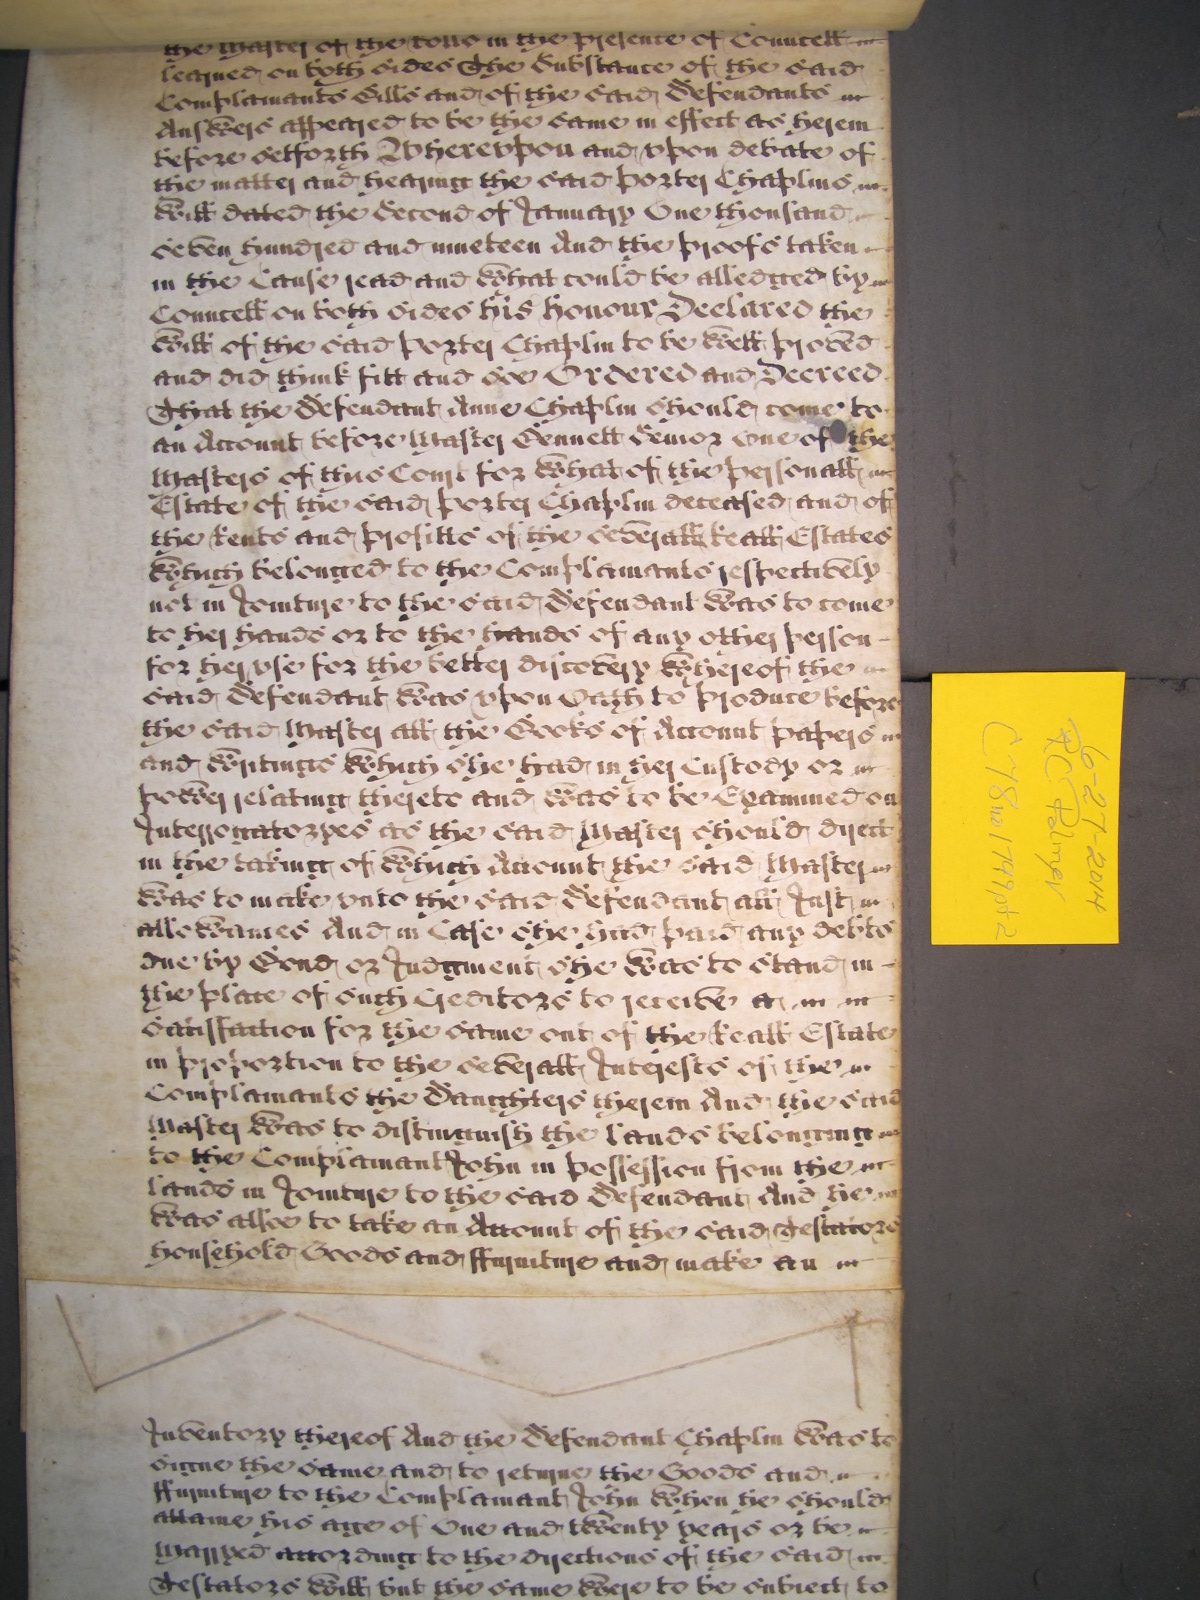 the Master of the Rolls in the presence of Councell
learned on both sides The Substance of the said
Complainants Bills and of the said Defendants
Answers appeared to be the same in effect as herein
before setforth Wherevpon and vpon debate of
the matter and hearing the said Porter Chaplins
Will dated the Second of January One thousand
seven hundred and nineteen And the proofs taken
in the Cause read and what could be alledged by
Councell on both sides his honour Declared the
Will of the said Porter Chaplin to be well proved
and did think fitt and soe Ordered and Decreed
That the Defendant Anne Chaplin should come to
an Account before Master Bennett Senior one of the
Masters of this Court for what of the personall
Estate of the said Porter Chaplin deceased and of
the Rents and profitts of the severall Reall Estates
which belonged to the Complainants respectively
not in Jointure to the said Defendant was to come
to her hands or to the hands of any other person
for her vse for the better discovery whereof the
said Defendant was vpon Oath to produce before
the said Master all the Books of Account papers
and writings which she had in her Custody or
power relating thereto and was to be Examined on
Interrogatoryes as the said Master should direct
in the taking of which Account the said Master
was to make vnto the said Defendant all Just
allowances And in Case she had paid any debts
due by Bond or Judgment she was to stand in
the place of such Creditors to receive a
satisffaction for the same out of the Reall Estate
in proportion to the severall Interests of the
Complainants the Daughters therein And the said
Master was to distinguish the lands belonging
to the Complainant John in possession from the
lands in Jointure to the said Defendant And he
was alsoe to take an Account of the said Testators
household Goods and ffurniture and make an
Inventory thereof And the Defendant Chaplin was to
signe the same and to returne the Goods and
ffurniture to the Complainant John when he should
attaine his age of One and twenty years or be
Marryed according to the directions of the said
Testators Will but the same were to be subject to
6-27-2014
RC Palmer
C78no1749pt2